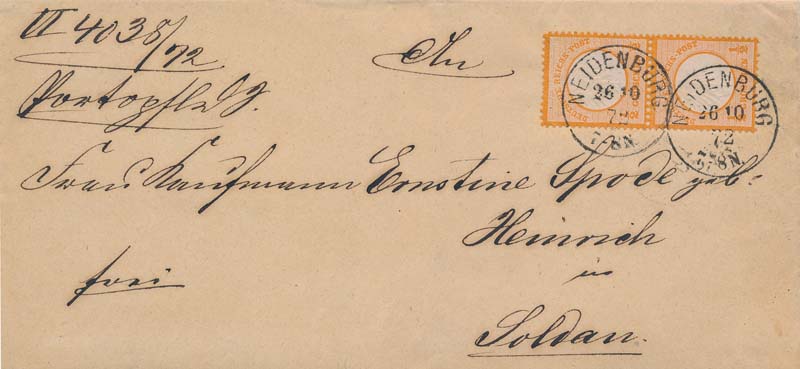 VI 4038/72
An
Portopfl. S.
NEIDENBURG
26 10
72
7-8N.
NEIDENBURG
26 10
72
7-8N.
DEUTSCHE REICHS-POST
Frau Kaufmann Ernstine Spode geb:
Heinrich
in
frei
Soldau.